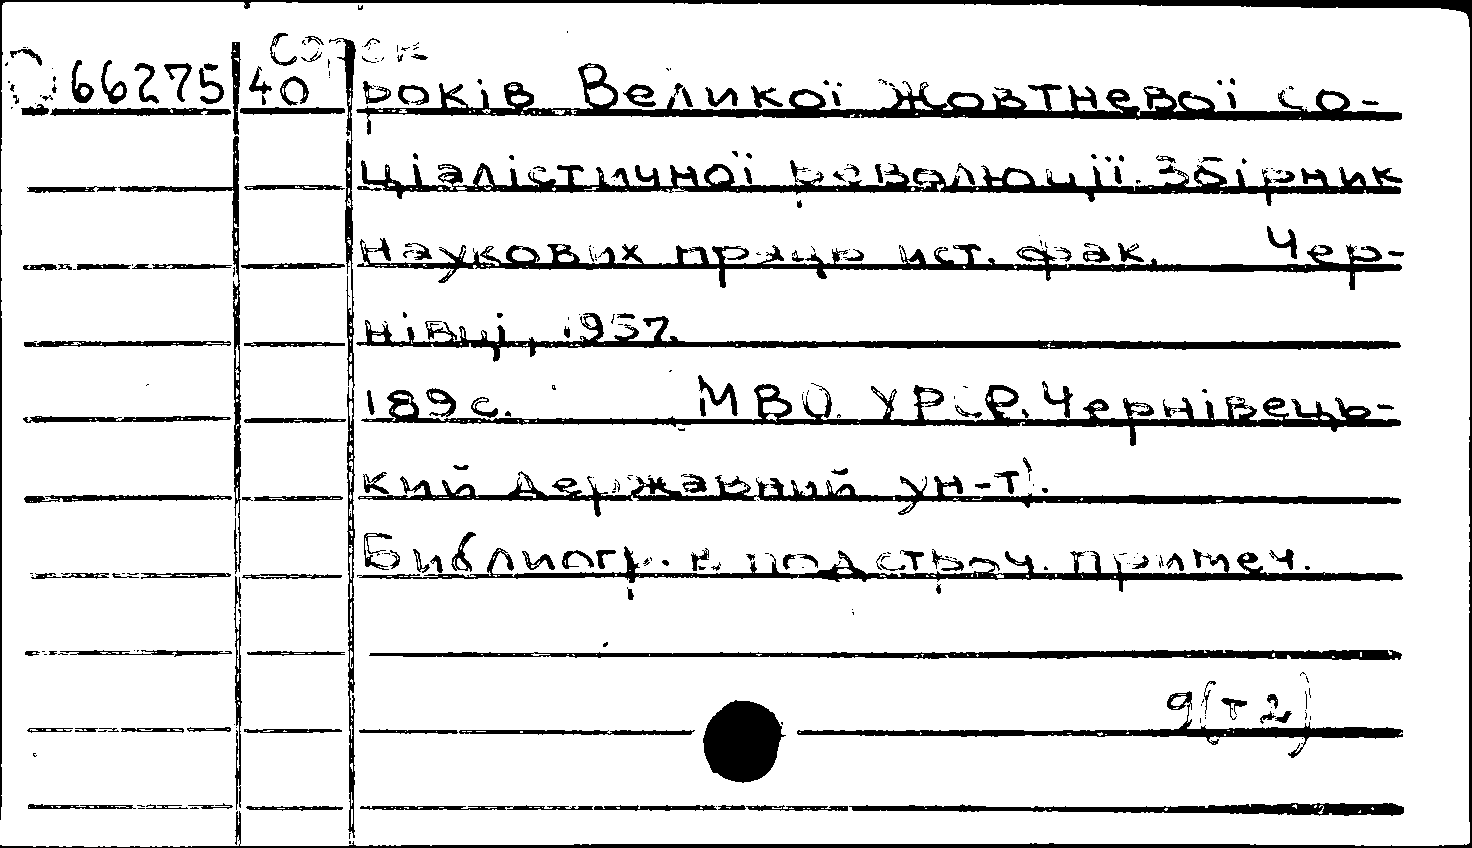 Сорок
66275 40 років Великої Жовтневої со-
ціалістичної революції. Збірник
наукових праць ист. фак. Чер-
нівці, 1957.
189 с. МВО УРСР. Чернівець-
кий державний ун-т).
Библиогр. в подстроч. примеч.
9(т2)